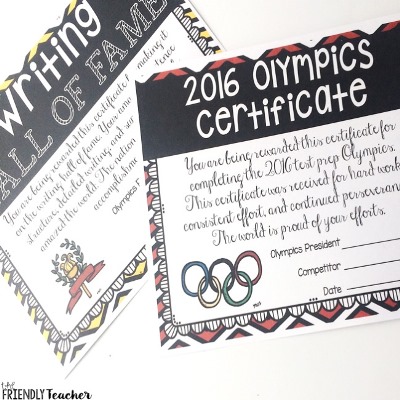 writing
HALL OF FAME
You are being rewarded this certificate f
making it
on the writing hall of fame. Your
structure, detailed writing, and
amazed the world. The nation
accomplishme
Olympics
2016 Olympics
Certificate
You are being rewarded this certificate for
completing the 2016 test prep Olympics.
This certificate was received for hard work,
consistent effort, and continued perseveran
The world is proud of your efforts.
Olympics President
Competitor
Date
the
FRIENDLY Teacher